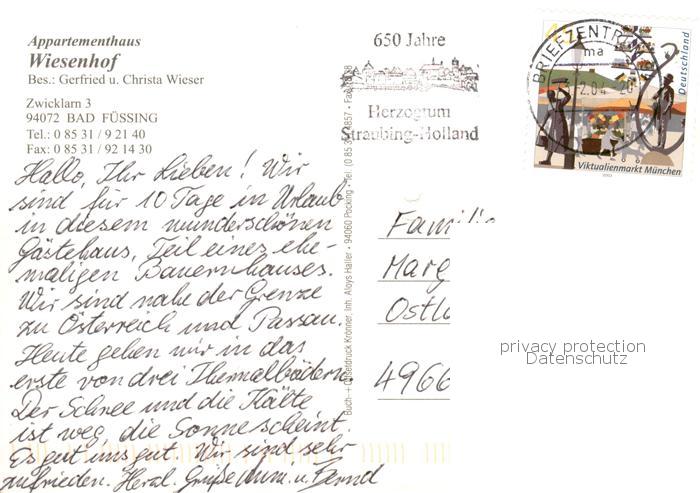 Appartementhaus
Wiesenhof
Bes.: Gerfried u. Christa Wieser
Zwicklarn 3
94072 BAD FÜSSING
Tel.: 0 85 31 / 9 21 40
Fax: 0 85 31 / 92 14 30
Hallo, Ihr Lieben! Wir
sind für 10 Tage in Urlaub
in diesem wunderschönen
Gästehaus, Teil eines ehe-
maligen Bauernhauses.
Wir sind nahe der Grenze
zu Österreich und Passau.
Heute gehen wir in das
erste von drei Thermalbädern.
Der Schnee und die Kälte
ist weg, die Sonne scheint.
Es gut uns gut. Wir sind sehr
zufrieden. Herzl. Grüße u. Bernd
Buch- + Offsetdruck Krönner, Inh. Aloys Haller • 94060 Pocking • Tel. (0 85 31)
650 Jahre
Herzogtum
Straubing-Holland
BRIEFZENTRUM
ma
2.04 - 20
Deutschland
Viktualienmarkt München
Famili
Marg
Ostl
4966
privacy protection
Datenschutz